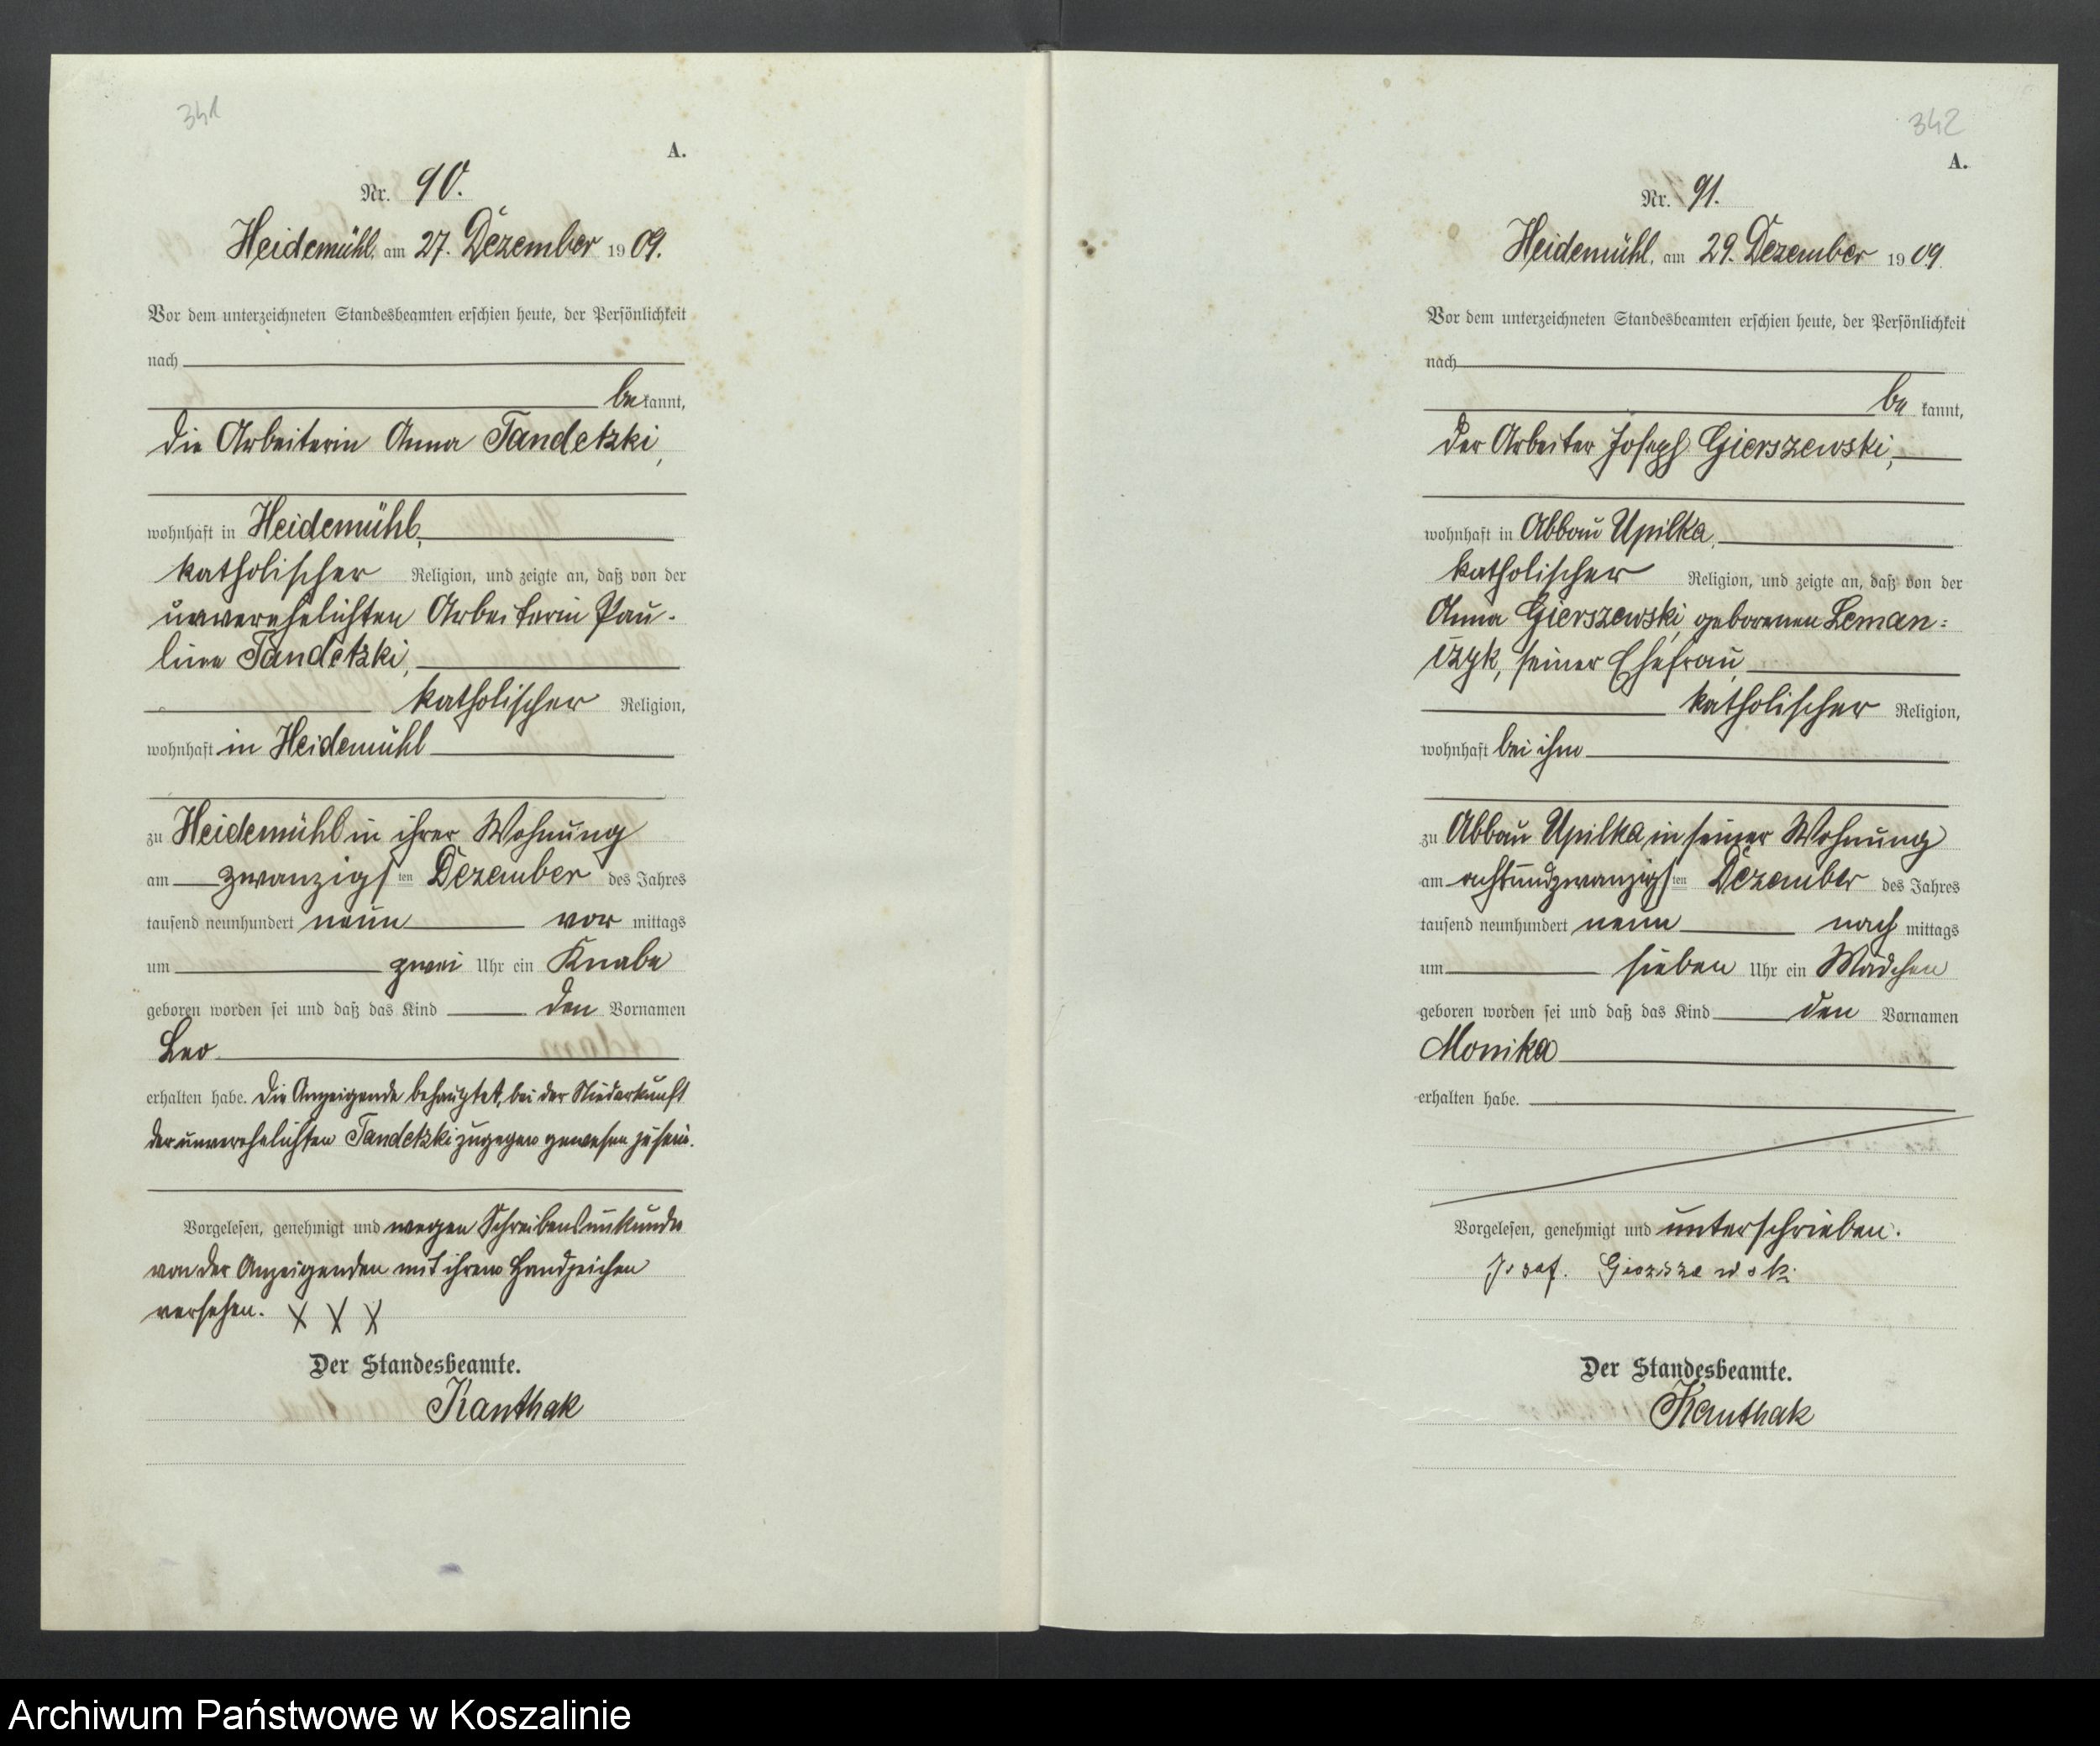 341
A.
Nr. 90.
Heidemühl, am 27. Dezember 1909.
Vor dem unterzeichneten Standesbeamten erschien heute, der Persönlichkeit
nach
bekannt,
die Arbeiterin Anna Tandetzki,
wohnhaft in Heidemühl,
katholischer Religion, und zeigte an, daß von der
unverehelichten Arbeiterin Pau-
line Tandetzki,
katholischer Religion,
wohnhaft in Heidemühl
zu Heidemühl in ihrer Wohnung
am zwanzigsten Dezember des Jahres
tausend neunhundert neun vormittags
um zwei Uhr ein Knabe
geboren worden sei und daß das Kind den Vornamen
Leo
erhalten habe. Die Anzeigende behauptet, bei der Niederkunft
der unverehelichten Tandetzki zugegen gewesen zu sein.
Vorgelesen, genehmigt und wegen Schreibensunkunde
von der Anzeigenden mit ihrem Handzeichen
versehen. X X X
Der Standesbeamte.
Kanthak
342
A.
Nr. 91.
Heidemühl, am 29. Dezember 1909
Vor dem unterzeichneten Standesbeamten erschien heute, der Persönlichkeit
nach
bekannt,
der Arbeiter Joseph Gierszewski,
wohnhaft in Abbau Upilka,
katholischer Religion, und zeigte an, daß von der
Anna Gierszewski geborenen Leman=
czyk, seiner Ehefrau,
katholischer Religion,
wohnhaft bei ihm
zu Abbau Upilka in seiner Wohnung
am achtundzwanzigsten Dezember des Jahres
tausend neunhundert neun nachmittags
um sieben Uhr ein Mädchen
geboren worden sei und daß das Kind den Vornamen
Monika
erhalten habe.
Vorgelesen, genehmigt und unterschrieben.
Josef. Gierszewski
Der Standesbeamte.
Kanthak
Archiwum Państwowe w Koszalinie